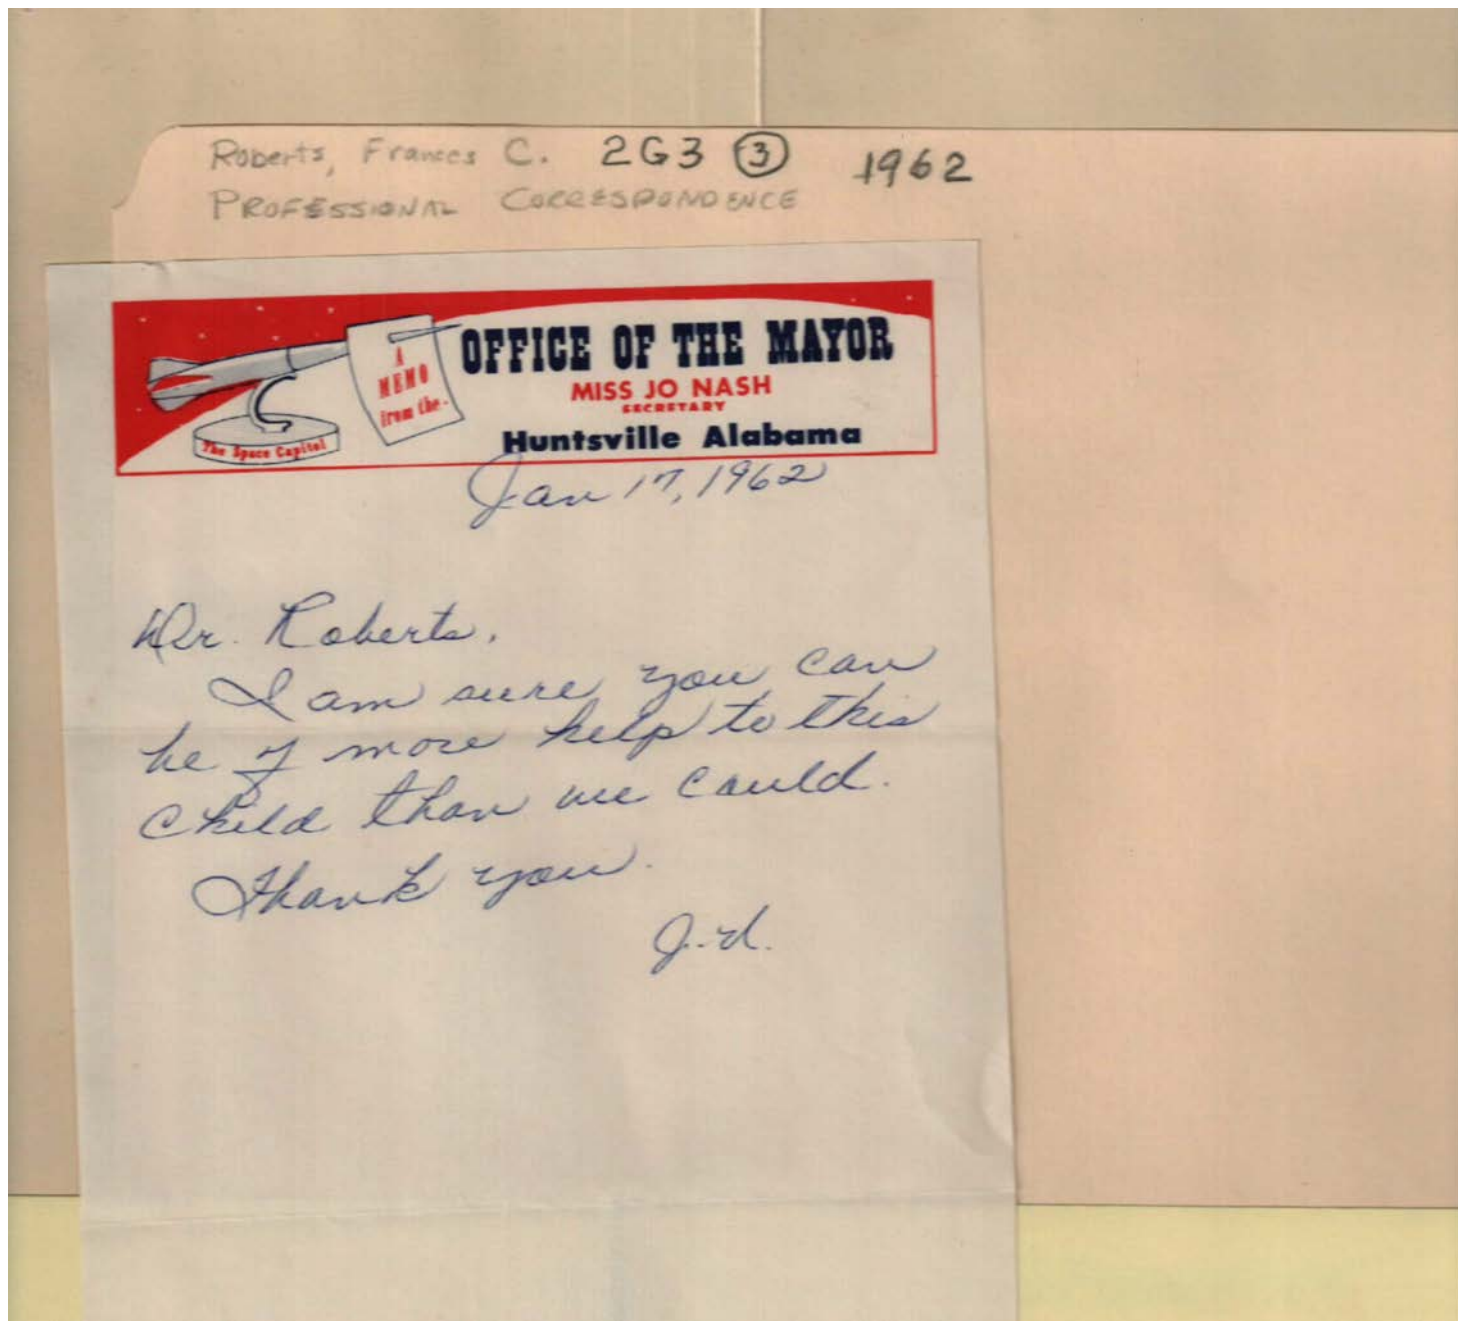 Roberts, Frances C. 2G3 ③ 1962
PROFESSIONAL CORRESPONDENCE
A
MEMO
from the-
OFFICE OF THE MAYOR
MISS JO NASH
SECRETARY
The Space Capitol
Huntsville Alabama
Jan 17, 1962
Dr. Roberts,
I am sure you can
be of more help to this
child than we could.
Thank you.
J.N.